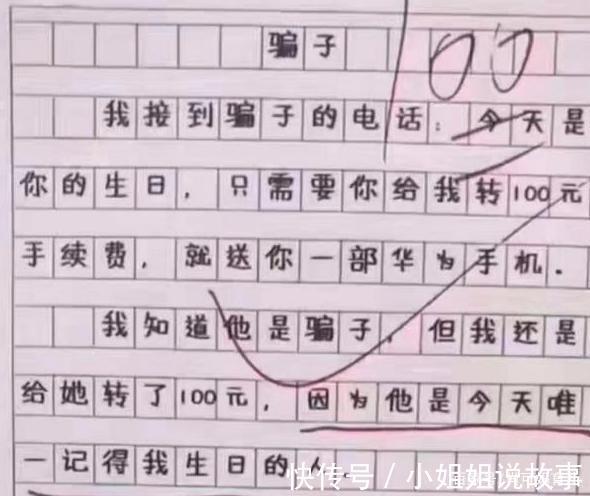 骗子
100
我接到骗子的电话：今天是
你的生日，只需要你给我转100元
手续费，就送你一部华为手机.
我知道他是骗子，但我还是
给她转了100元，因为他是今天唯
一记得我生日的人
快传号/小姐姐说故事